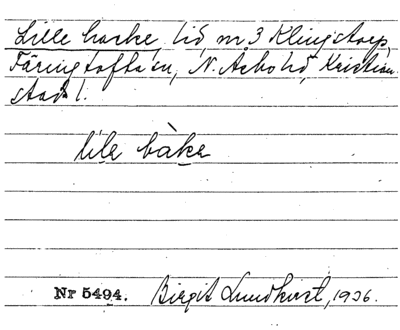 Lille backe, lid n:r 3 Klingstorp,
Färingtofta sn, N. Åsbo hd, Kristian-
stads l.
lile bàke
Nr 5494. Birgit Lundkvist, 1936.